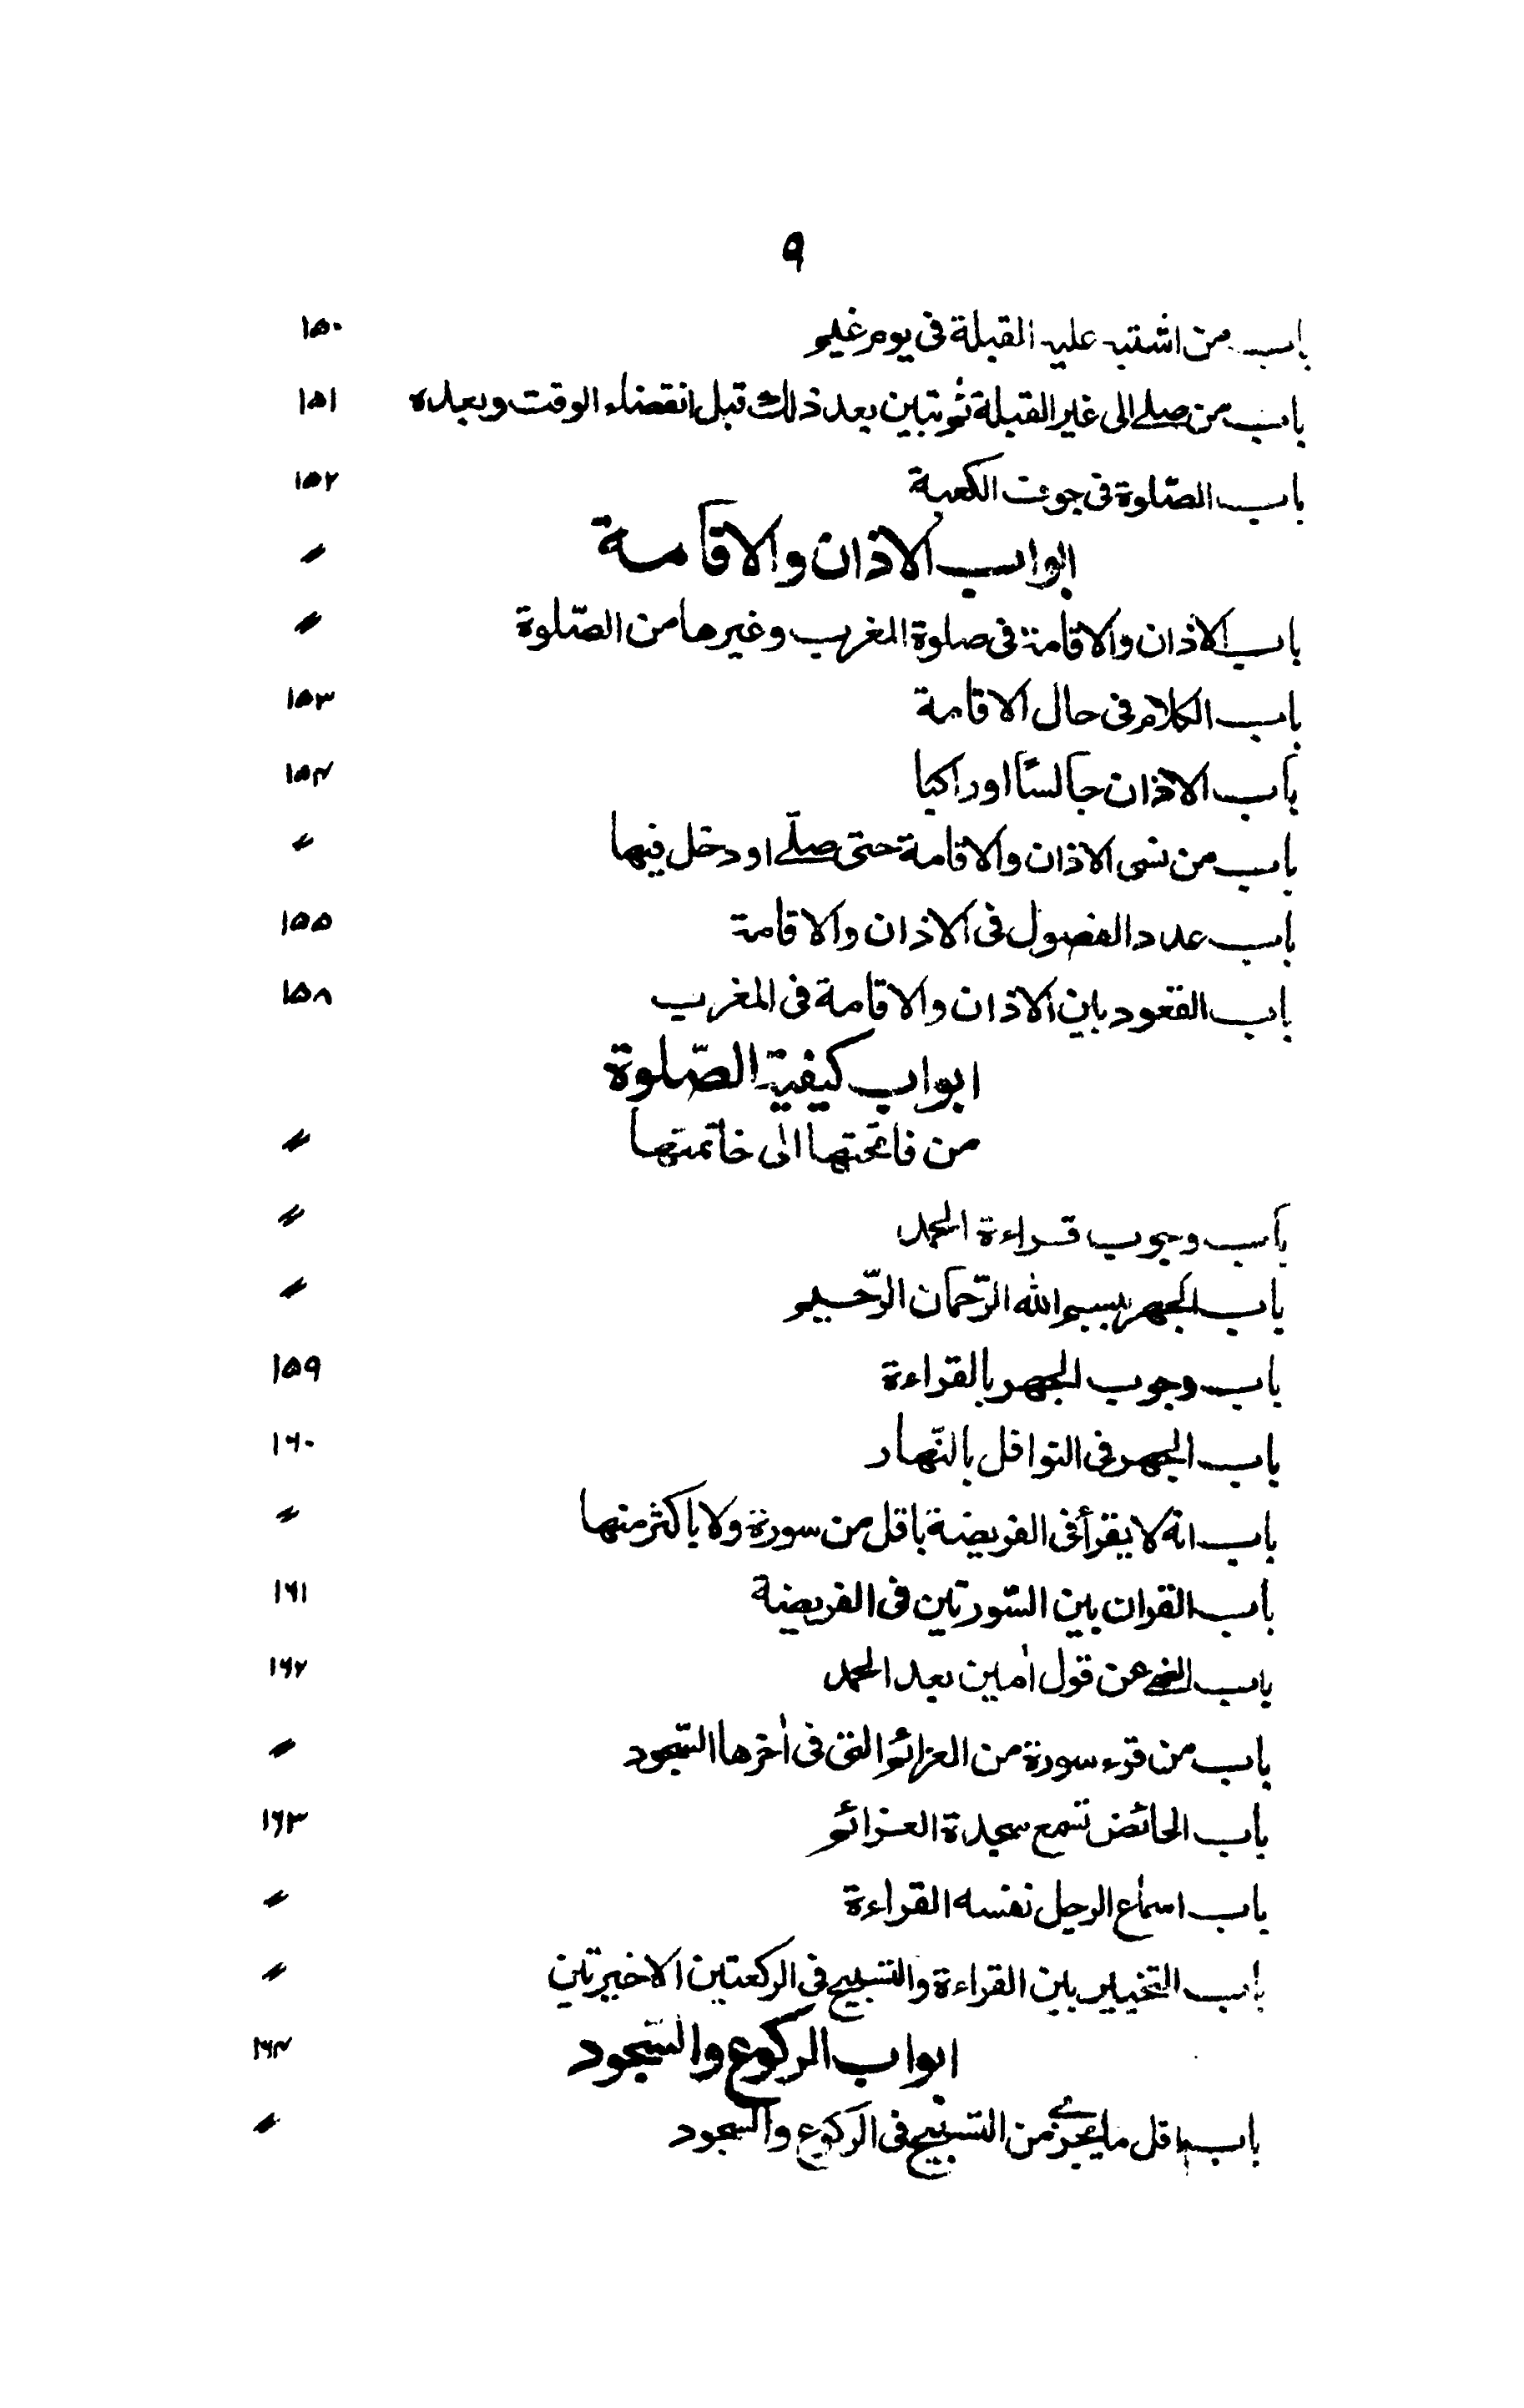 ۹
باب من اشتبه عليه القبلة فى يوم غيم ۱۵۰
باب من صلے الى غير القبلة ثم تبين بعد ذلك قبل انقضاء الوقت وبعده ۱۵۱
باب الصّلوة فى جوف الكعبة ۱۵۲
ابواب الاذان والاقامة 〃
باب الاذان والاقامة فى صلوة المغرب وغيرها من الصّلوة 〃
باب الكلام فى حال الاقامة ۱۵۳
باب الاذان جالسًا اوراكبا ۱۵۴
باب من نسى الاذان والاقامة حتى صلّے اودخل فيها 〃
باب عدد الفصول فى الاذان والاقامة ۱۵۵
باب القعود بين الاذان والاقامة فى المغرب ۱۵۸
ابواب كيفية الصّلوة
من فاتحتها الى خاتمتها 〃
باب وجوب قراءة الحمد 〃
باب الجهر ببسم الله الرّحمان الرّحيم 〃
باب وجوب الجهر بالقراءة ۱۵۹
باب الجهر فى النوافل بالنّهار ۱۶۰
باب انه لا يقرأ فى الفريضة باقل من سورة ولا باكثر منها 〃
باب القران بين السّورتين فى الفريضة ۱۶۱
باب النهے عن قول اٰمين بعد الحمد ۱۶۲
باب من قرء سورة من العزائم التى فى اٰخرها السّجود 〃
باب الحائض تسمع سجدة العزائم ۱۶۳
باب اسماع الرجل نفسه القراءة 〃
باب التخيير بين القراءة والتسبيح فى الركعتين الاخيرتين 〃
ابواب الركوع والسّجود ۱۶۴
باب اقل ما يجزے من التسبيح فى الركوع والسجود 〃